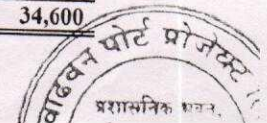 34,600
वाढवन पोर्ट प्रोजेक्ट
प्रशासनिक भवन,